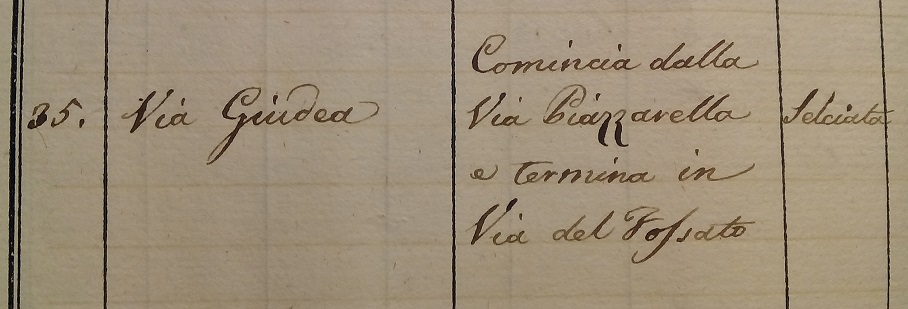 Comincia dalla
35. Via Giudea Via Piazzarella Selciata
e termina in
Via del Fossato